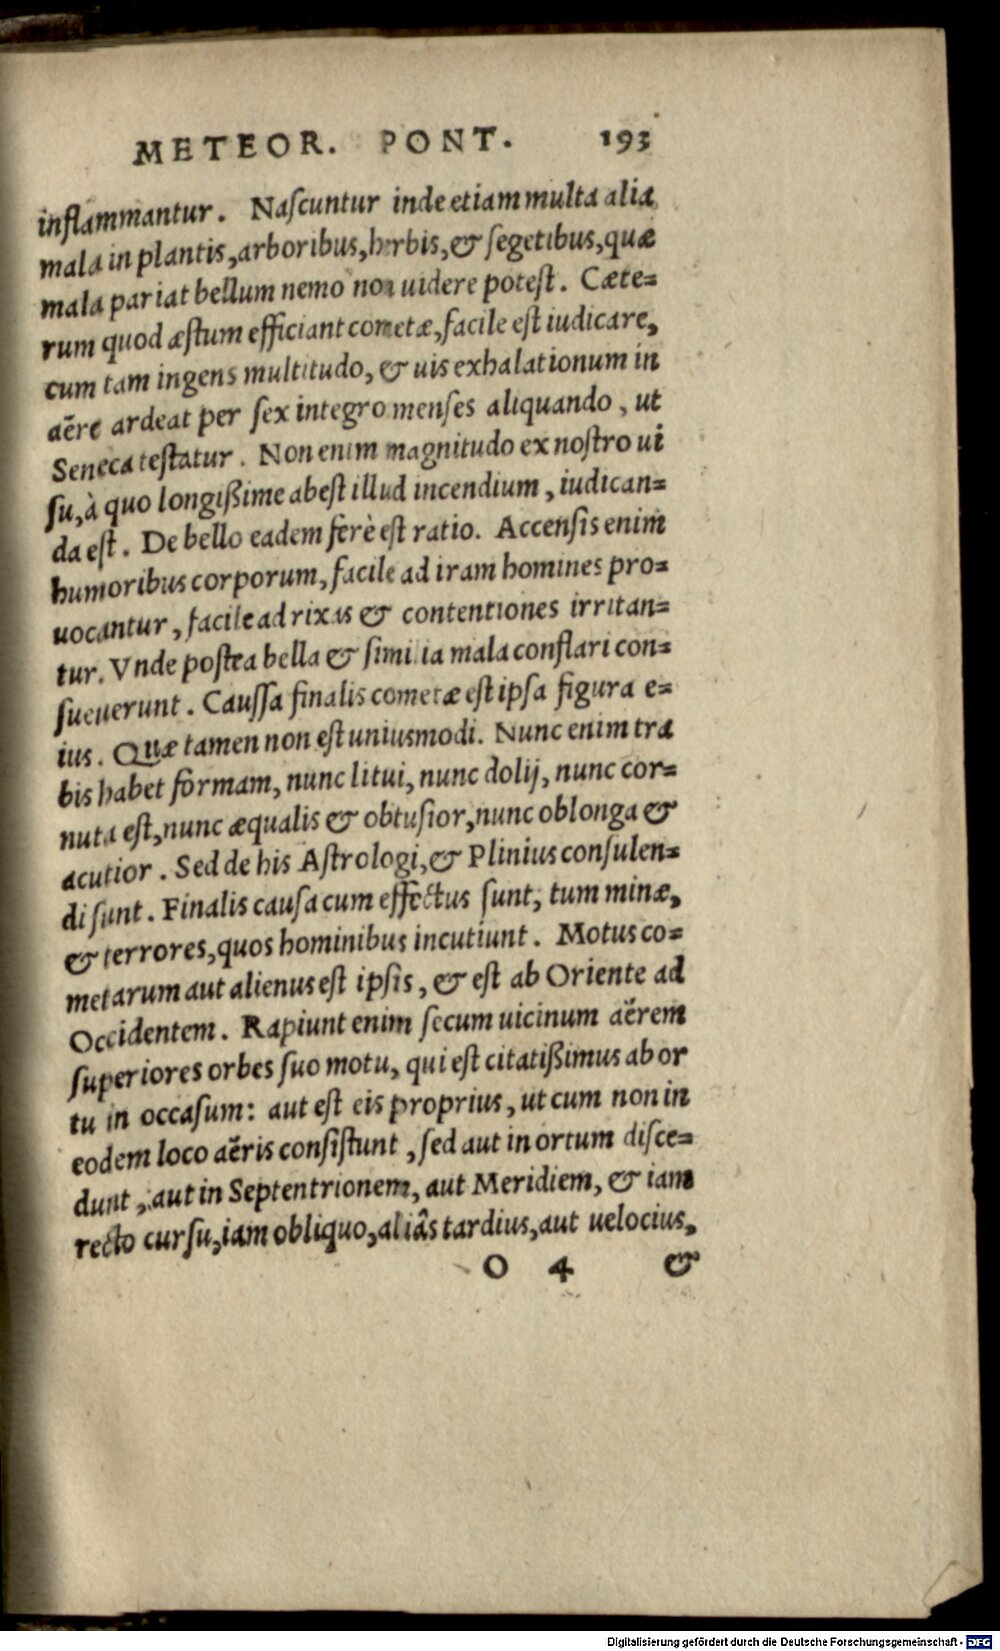 METEOR. PONT. 193
inflammantur. Naſcuntur inde etiam multa alia
mala in plantis, arboribus, herbis, & ſegetibus, quæ
mala pariat bellum nemo non uidere poteſt. Cæte=
rum quod æſtum efficiant cometæ, facile eſt iudicare,
cum tam ingens multitudo, & uis exhalationum in
aëre ardeat per ſex integro menſes aliquando, ut
Seneca teſtatur. Non enim magnitudo ex noſtro ui
ſu, à quo longißime abeſt illud incendium, iudican=
da eſt. De bello eadem ferè eſt ratio. Accenſis enim
humoribus corporum, facile ad iram homines pro=
uocantur, facile ad rixas & contentiones irritan=
tur. Vnde poſtea bella & ſimilia mala conflari con=
ſueuerunt. Cauſſa finalis cometæ eſt ipſa figura e=
ius. Quæ tamen non eſt uniusmodi. Nunc enim tra
bis habet formam, nunc litui, nunc dolij, nunc cor=
nuta eſt, nunc æqualis & obtuſior, nunc oblonga &
acutior. Sed de his Aſtrologi, & Plinius conſulen=
di ſunt. Finalis cauſa cum effectus ſunt, tum minæ,
& terrores, quos hominibus incutiunt. Motus co=
metarum aut alienus eſt ipſis, & eſt ab Oriente ad
Occidentem. Rapiunt enim ſecum uicinum aërem
ſuperiores orbes ſuo motu, qui eſt citatißimus ab or
tu in occaſum: aut eſt eis proprius, ut cum non in
eodem loco aëris conſiſtunt, ſed aut in ortum diſce=
dunt, aut in Septentrionem, aut Meridiem, & iam
recto curſu, iam obliquo, aliâs tardius, aut uelocius,
O 4 &
Digitalisierung gefördert durch die Deutsche Forschungsgemeinschaft - DFG